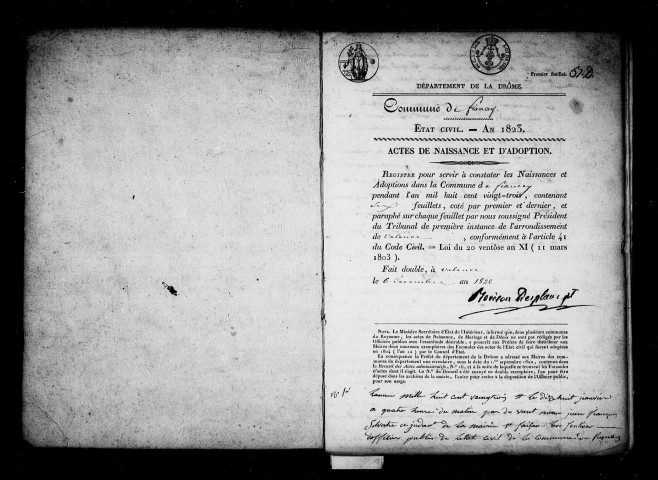 Premier feuillet. 522.
DÉPARTEMENT DE LA DRÔME.
Commune de
ÉTAT CIVIL. — AN 1823.
ACTES DE NAISSANCE ET D'ADOPTION.
REGISTRE pour servir à constater les Naissances et
Adoptions dans la Commune d
pendant l'an mil huit cent vingt-trois, contenant
feuillets, coté par premier et dernier, et
paraphé sur chaque feuillet par nous soussigné Président
du Tribunal de première instance de l'arrondissement
de Valence, conformément à l'article 41
du Code Civil. = Loi du 20 ventôse an XI (11 mars
1803).
Fait double, à valence
le 6 decembre an 1822
NOTA. Le Ministre Secrétaire d'État de l'Intérieur, informé que, dans plusieurs communes
du Royaume, les actes de Naissance, de Mariage et de Décès ne sont pas rédigés par les
Officiers publics avec l'exactitude désirable, a prescrit aux Préfets de faire distribuer aux
Maires deux nouveaux exemplaires des Formules des actes de l'État civil qui furent adoptées
en 1804 (l'an 12) par le Conseil d'État.
En conséquence le Préfet du département de la Drôme a adressé aux Maires des communes
du département une circulaire, sous la date du 1.er septembre
dans le Recueil des Actes administratifs, N.º 16, et à la suite de laquelle se trouvent les Formules
d'actes dont il s'agit. Le N.º du Recueil a été envoyé en double exemplaire, l'un pour être
déposé dans les archives de la mairie, l'autre pour rester à la disposition de l'Officier public,
pour son usage.
N.º 1er
Lan mille huit cent vingtrois et le dix huit janvier
a quatre heure du matin par de vant nous jean françois
adjoint de la mairie et faisant les fonction
officier public de letat civil de la commune de